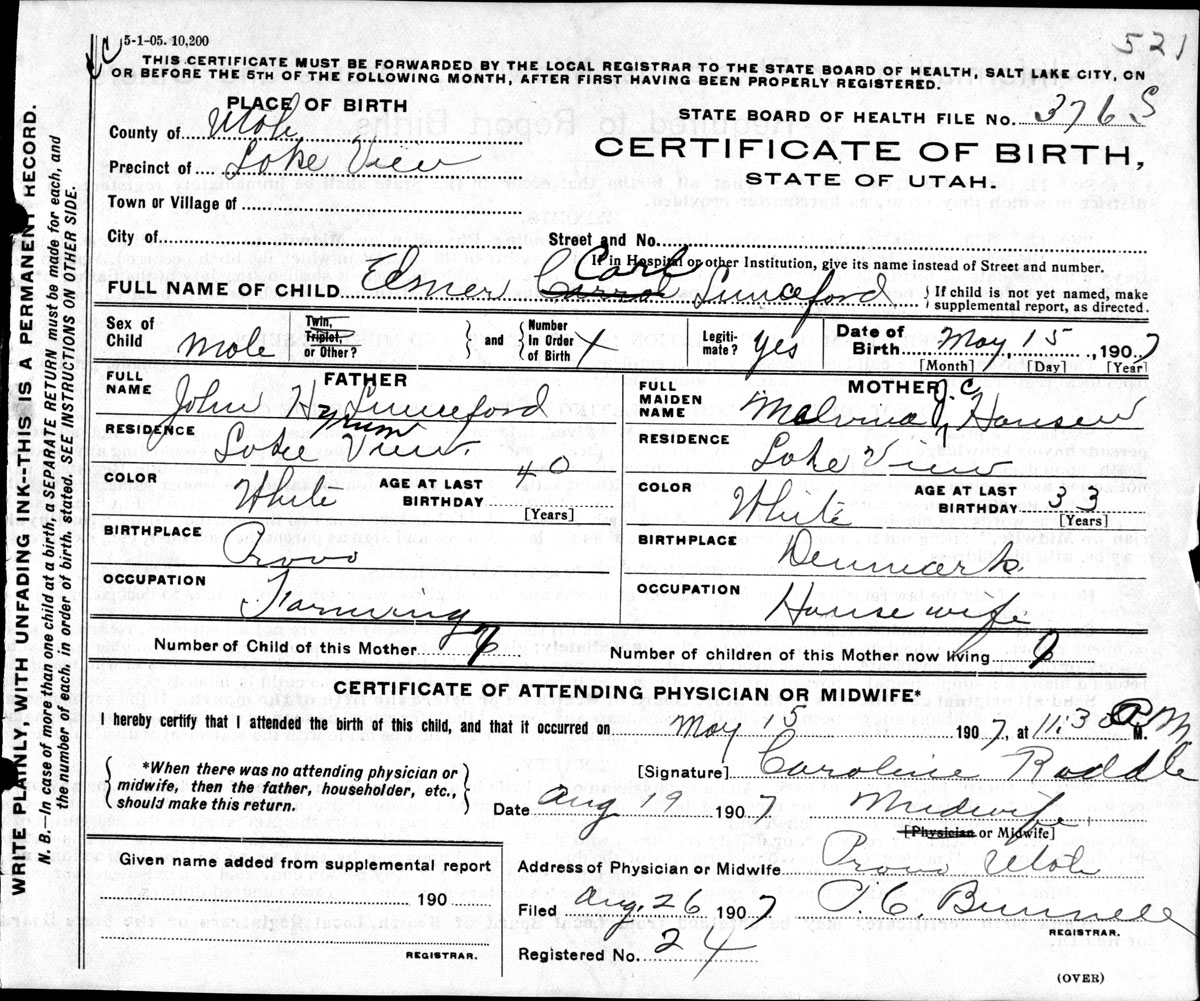 5-1-05. 10,200
521
THIS CERTIFICATE MUST BE FORWARDED BY THE LOCAL REGISTRAR TO THE STATE BOARD OF HEALTH, SALT LAKE CITY, ON
OR BEFORE THE 5TH OF THE FOLLOWING MONTH, AFTER FIRST HAVING BEEN PROPERLY REGISTERED.
PLACE OF BIRTH
STATE BOARD OF HEALTH FILE No. 376 S
County of Utah
CERTIFICATE OF BIRTH,
Precinct of Lake View
STATE OF UTAH.
Town or Village of
City of Street and No.
If in Hospital or other Institution, give its name instead of Street and number.
Carl
FULL NAME OF CHILD Elmer Carrol Lunceford { If child is not yet named, make
supplemental report, as directed.
Sex of Child Male Twin, Triplet, or Other? } and { Number In Order of Birth 1 Legiti- mate? yes Date of Birth May 15, 1907
[Month] [Day] [Year]
FATHER
FULL NAME John Hyrum Lunceford
RESIDENCE Lake View.
COLOR White AGE AT LAST BIRTHDAY 40
[Years]
BIRTHPLACE Provo
OCCUPATION Farming
MOTHER
FULL MAIDEN NAME Malvina J.C. Hansen
RESIDENCE Lake View
COLOR White AGE AT LAST BIRTHDAY 33
[Years]
BIRTHPLACE Denmark
OCCUPATION House wife
Number of Child of this Mother Number of children of this Mother now living
CERTIFICATE OF ATTENDING PHYSICIAN OR MIDWIFE*
I hereby certify that I attended the birth of this child, and that it occurred on May 15 1907, at 11:30 P M.
*When there was no attending physician or
midwife, then the father, householder, etc.,
should make this return.
[Signature] Caroline Raddle
Date Aug 19 1907 Midwife
[Physician or Midwife]
Given name added from supplemental report
190
REGISTRAR.
Address of Physician or Midwife Provo Utah
Filed Aug, 26 1907 REGISTRAR.
Registered No. 24
(OVER)
WRITE PLAINLY, WITH UNFADING INK--THIS IS A PERMANENT RECORD.
N. B.—In case of more than one child at a birth, a SEPARATE RETURN must be made for each, and
the number of each, in order of birth, stated. SEE INSTRUCTIONS ON OTHER SIDE.